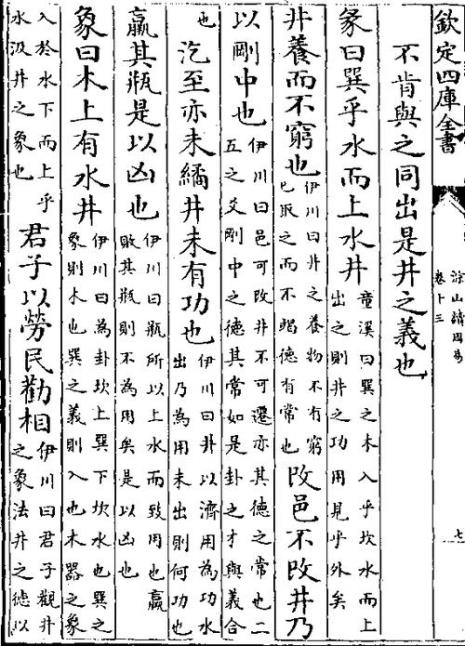 欽定四庫全書
涂山讀周易
卷十三
七
不肯與之同出是井之義也
彖曰巽乎水而上水井
童溪曰巽之木入乎坎水而上
出之則井之功用見乎外矣
井養而不窮也
伊川曰井之養物不有窮
已取之而不竭德有常也
改邑不改井乃
以剛中也
伊川曰邑可改井不可遷亦其德之常也二
五之爻剛中之德其常如是卦之才與義合
也
汔至亦未繘井未有功也
伊川曰井以濟用為功水
出乃為用未出則何功也
羸其瓶是以凶也
伊川曰瓶所以上水而致用也羸
敗其瓶則不為用矣是以凶也
象曰木上有水井
伊川曰為卦坎上巽下坎水也巽之
象則木也巽之義則入也木器之象
入於水下而上乎
水汲井之象也
君子以勞民勸相
伊川曰君子觀井
之象法井之德以